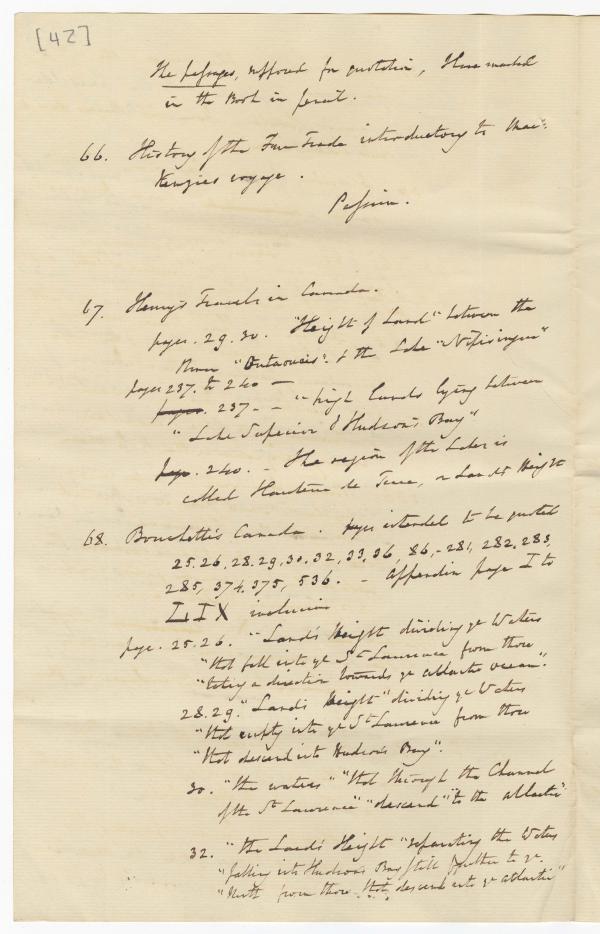 [42]
The passages, supposed for quotation, I have marked
in the Book in pencil.
66. History of the Fur Trade introductory to Mac-
Kenzies voyage.
Passim.
67. Henry's Travels in Canada.
pages. 29. 30. "Height of Land" between the
River "Outaouais" & the Lake "Nipisingue"
pages 237. to 240 —
pages. 237. - "high Lands lying between
"Lake Superior & Hudson's Bay"
page. 240. - The region of the Lakes is
called Hauteur de Terre, or Land's Height
68. Bouchette's Canada. pages intended to be quoted
25. 26, 28. 29, 30. 32, 33, 36, 86, - 281, 282, 283,
285, 374, 375, 536. - Appendix page I to
LIX inclusive
page. 25. 26. "Land's Height dividing ye Waters
"that fall into ye St Lawrence from those
"taking a direction towards ye atlantic ocean".
28. 29. "Land's Height" dividing ye Waters
"that empty into ye St Lawrence from those
"that descend into Hudson's Bay".
30. "the waters" "that through the Channel
of the St Lawrence" "descend" "to the atlantic"
32. "the Land's Height "separating the Waters
"falling into Hudson's Bay still further to ye
"North from those that descend into ye atlantic"